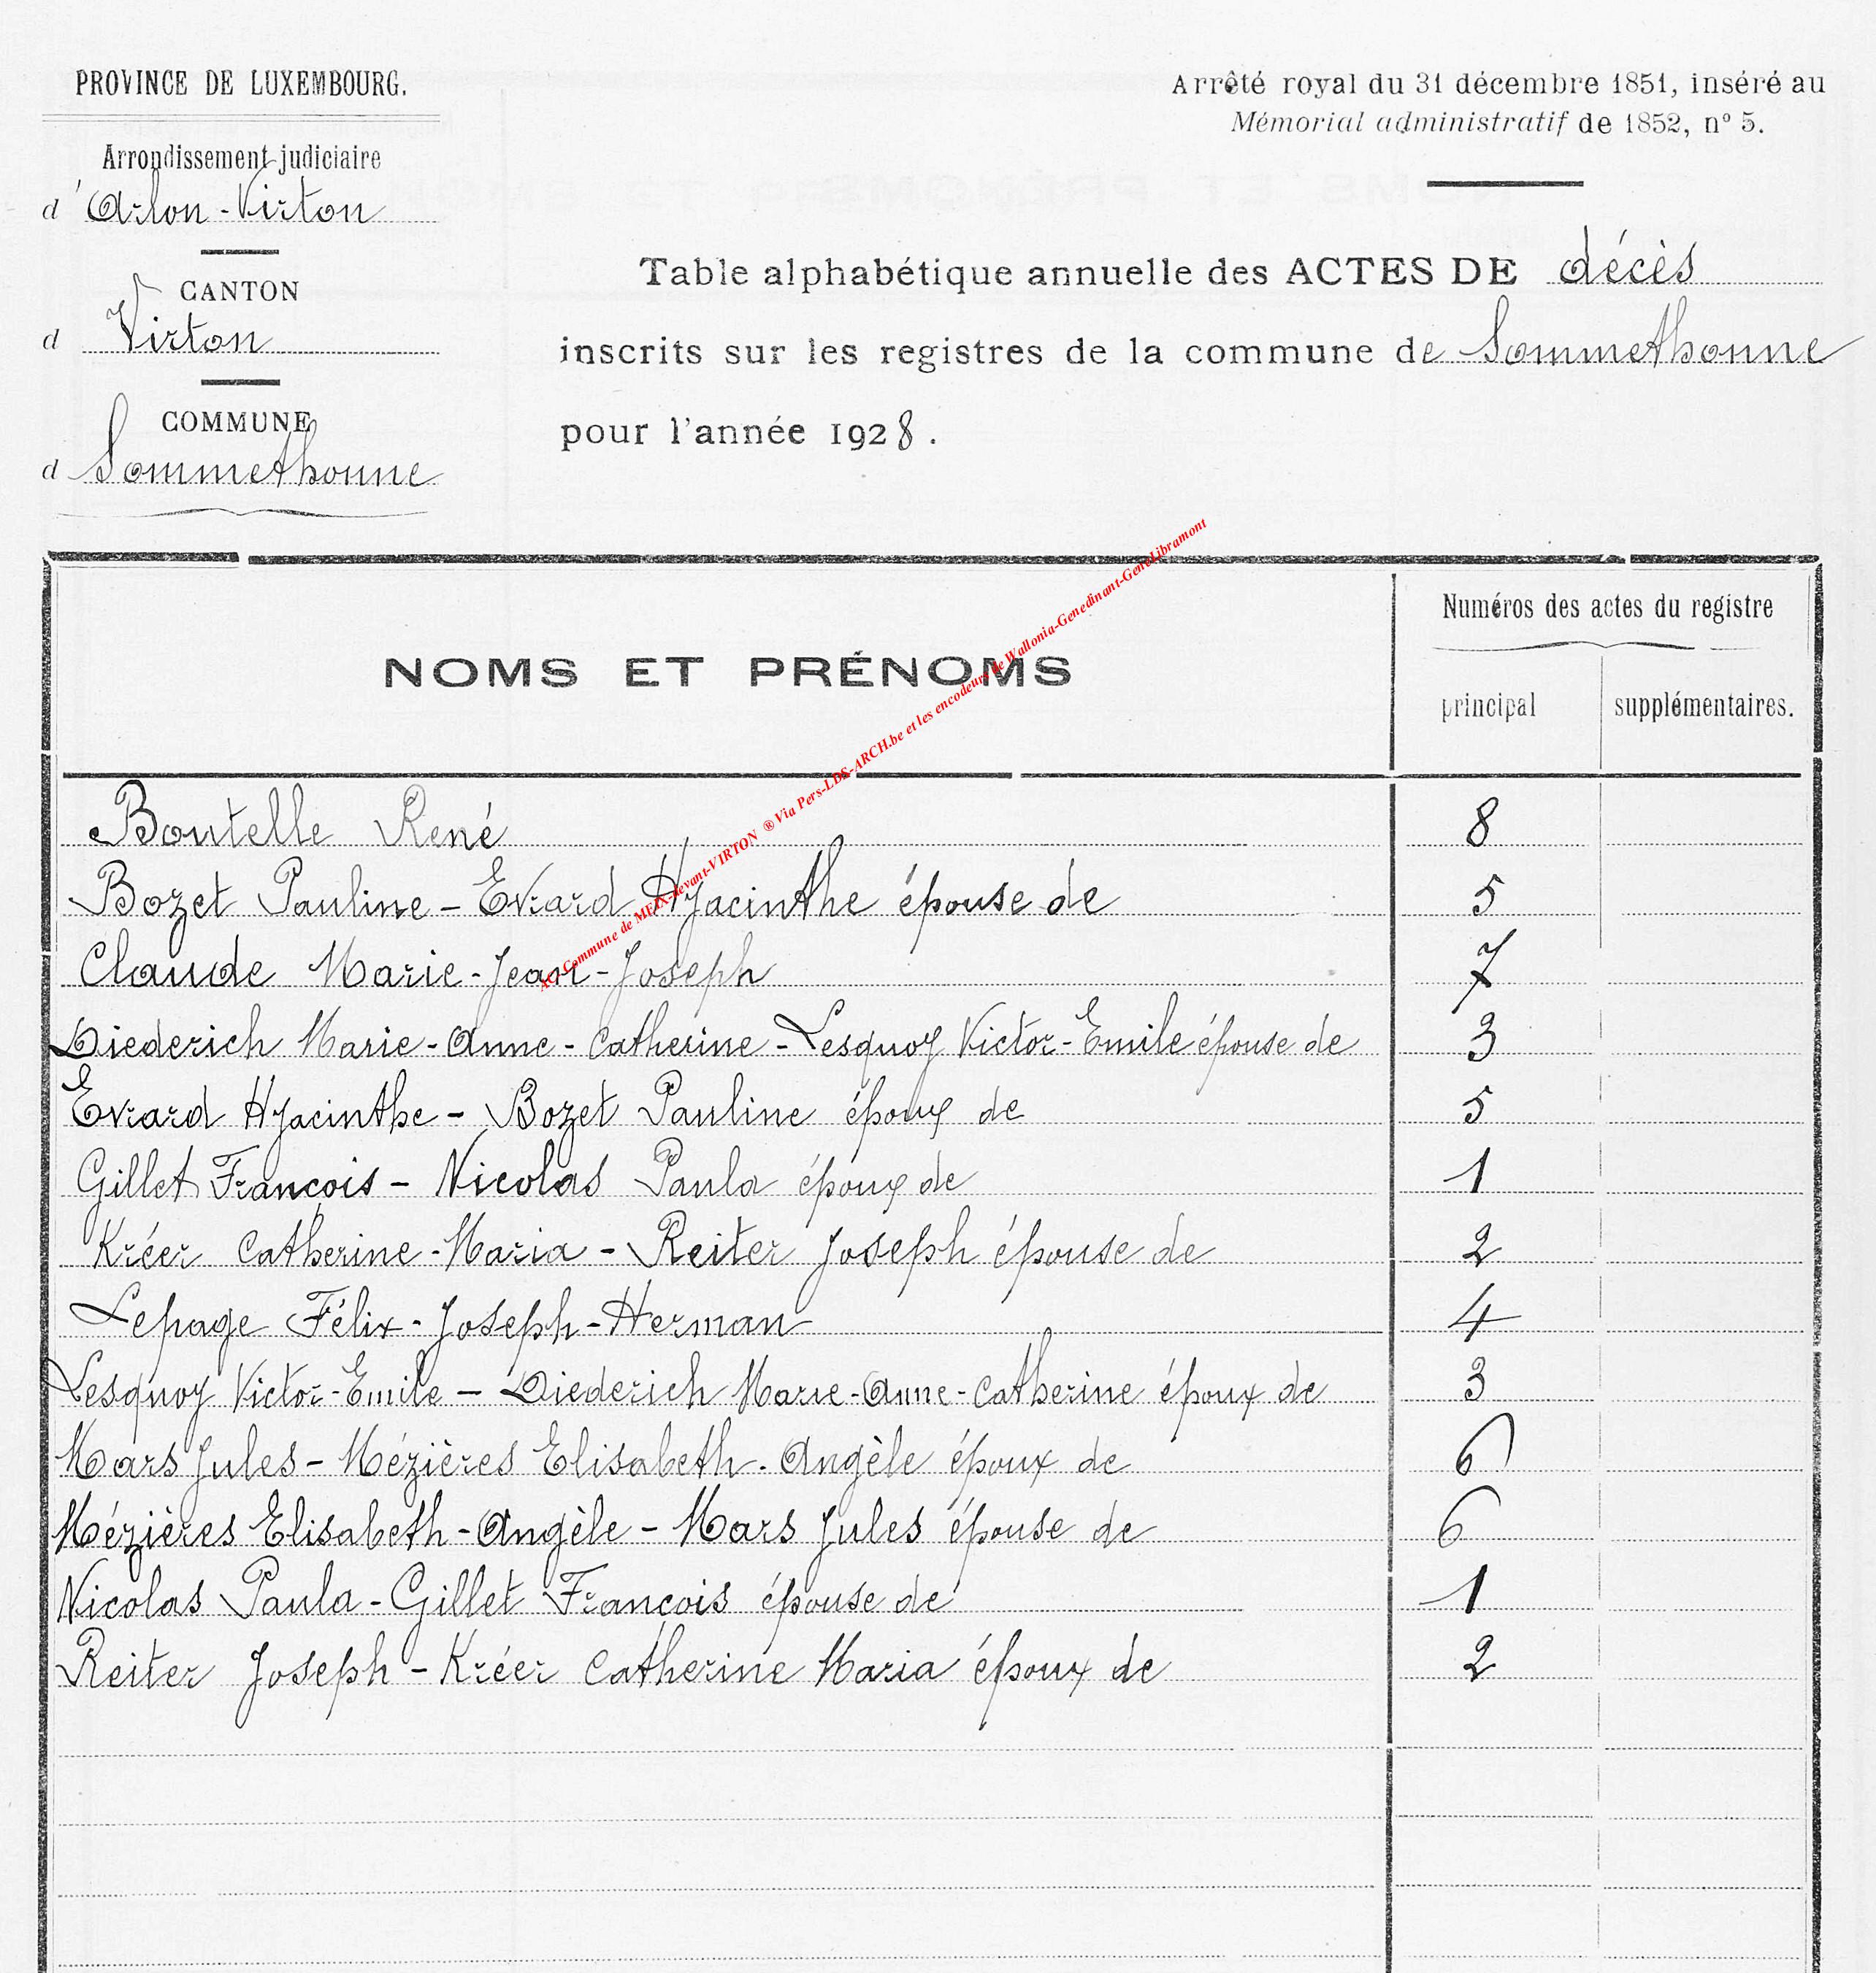 PROVINCE DE LUXEMBOURG.
Arrondissement judiciaire
d'Arlon-Virton
CANTON
d Virton
COMMUNE
d Sommethonne
Arrêté royal du 31 décembre 1851, inséré au
Mémorial administratif de 1852, n° 5.
Table alphabétique annuelle des ACTES DE décès
inscrits sur les registres de la commune de Sommethonne
pour l'année 1928.
NOMS ET PRÉNOMS
Numéros des actes du registre
principal
supplémentaires.
AC Commune de MEIX-devant-VIRTON ® Via Pers-LDS-ARCH.be et les encodeurs de Wallonia-Genedinant-GeneLibramont
Boutelle René 8
Bozet Pauline - Evrard Hyacinthe épouse de 5
Claude Marie-Jean-Joseph 7
Diederich Marie-Anne-Catherine - Lesquoy Victor-Emile épouse de 3
Evrard Hyacinthe - Bozet Pauline époux de 5
Gillet François - Nicolas Paula époux de 1
Kréer Catherine-Maria - Reiter Joseph épouse de 2
Lepage Félix-Joseph-Herman 4
Lesquoy Victor-Emile - Diederich Marie-Anne-Catherine époux de 3
Mars Jules - Mézières Elisabeth-Angèle époux de 6
Mézières Elisabeth-Angèle - Mars Jules épouse de 6
Nicolas Paula - Gillet François épouse de 1
Reiter Joseph - Kréer Catherine Maria époux de 2